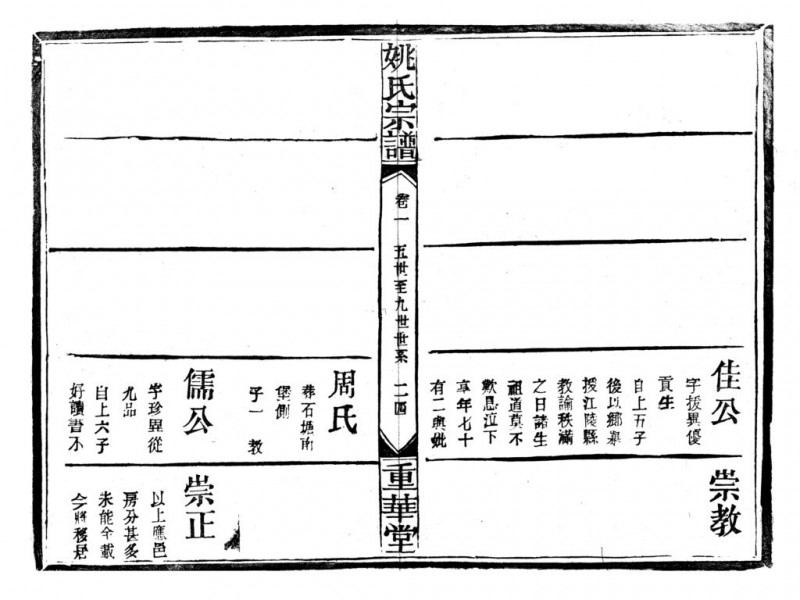 佳公
字援異優
貢生
自上五子
後以鄉舉
授江陵縣
教諭秩滿
之日諸生
祖道莫不
歎息泣下
享年七十
有二與妣
崇教
姚氏宗譜
卷一 五世至九世世系 二四
重華堂
周氏
葬石塘南
堡側
子一 教
儒公
字珍異從
九品
自上六子
好讀書不
崇正
以上應邑
房分甚多
未能全載
今將移居